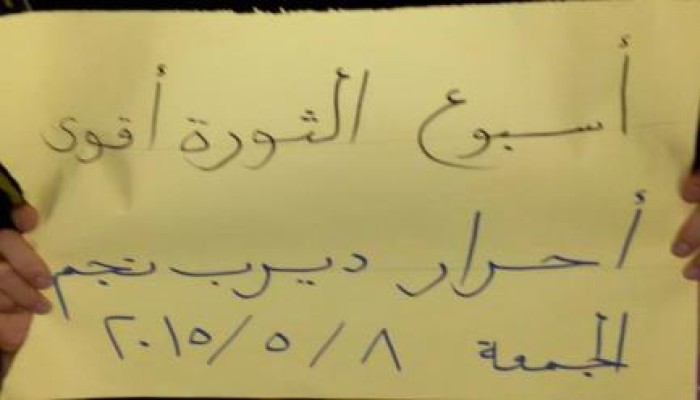 أسبوع الثورة أقوى
أحرار ديرب نجم
الجمعة ٨/٥/٢٠١٥